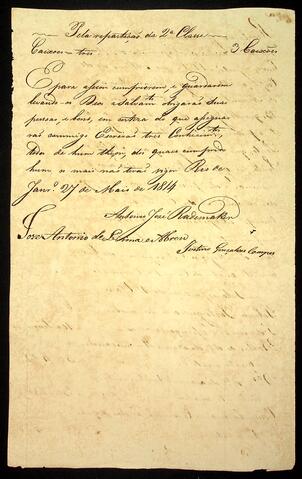 Pela repartição da 2ª Classe
Caixoens tres 3 Caixoens
E para assim cumprirem e guardarem
levando os Deos a Salvamto obrigarão Suas
pessoas e bens, em certeza do que asigna
rão commigo Escrivão tres Conhecimtos
todos de hum theor, dos quaes cumprido
hum os mais não terão vigor Rio de
Janrº 27 de Maio de 1814
Antonio José Rademaker
Jose Antonio de Lima e Abreu
Justino Gonçalves Campos